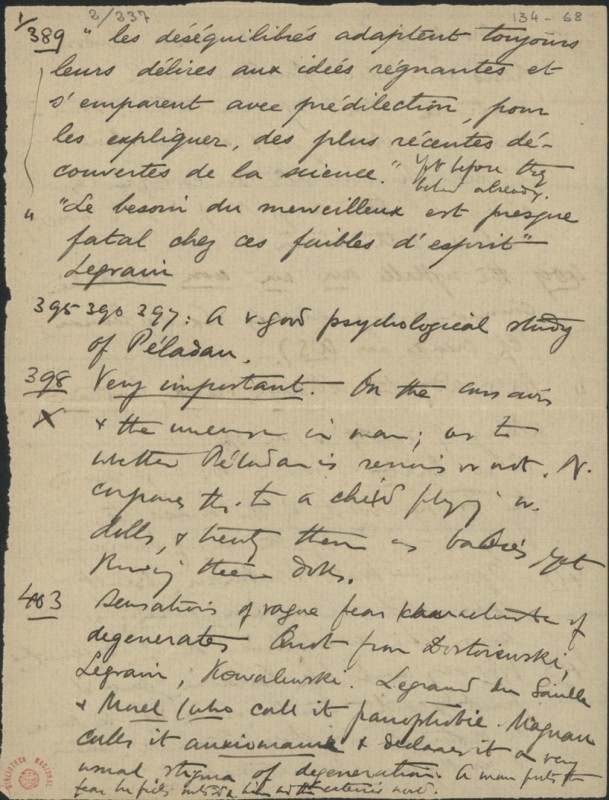 1/ 2/337 134-68
389 " les déséquilibrés adaptent toujours
leurs délires aux idées régnantes et
s'emparent avec prédilection, pour
les expliquer, des plus récentes dé-
couvertes de la science." Yet before they
" "Le besoin du merveilleux est presque
fatal chez ces faibles d'esprit"
Legrain
395 390 397: A v. good psychological study
of Péladan.
398 Very important. On the conscious
X & the unconsc in man; as to
whether Péladan is serious or not. N.
compares th. to a child playing w.
dolls, & treating them as babies, yet
knowing them dolls.
403 Sensations of vague fear characteristic of
degenerates Quot from Dostoievski,
Legrain, Kowalewski. Legrand du Saulle
& Morel (who call it panophobie. Magnan
calls it anxiomanie & declares it a very
usual stigma of degeneration. A man puts the
fear he feels outside him
BIBLIOTECA NACIONAL